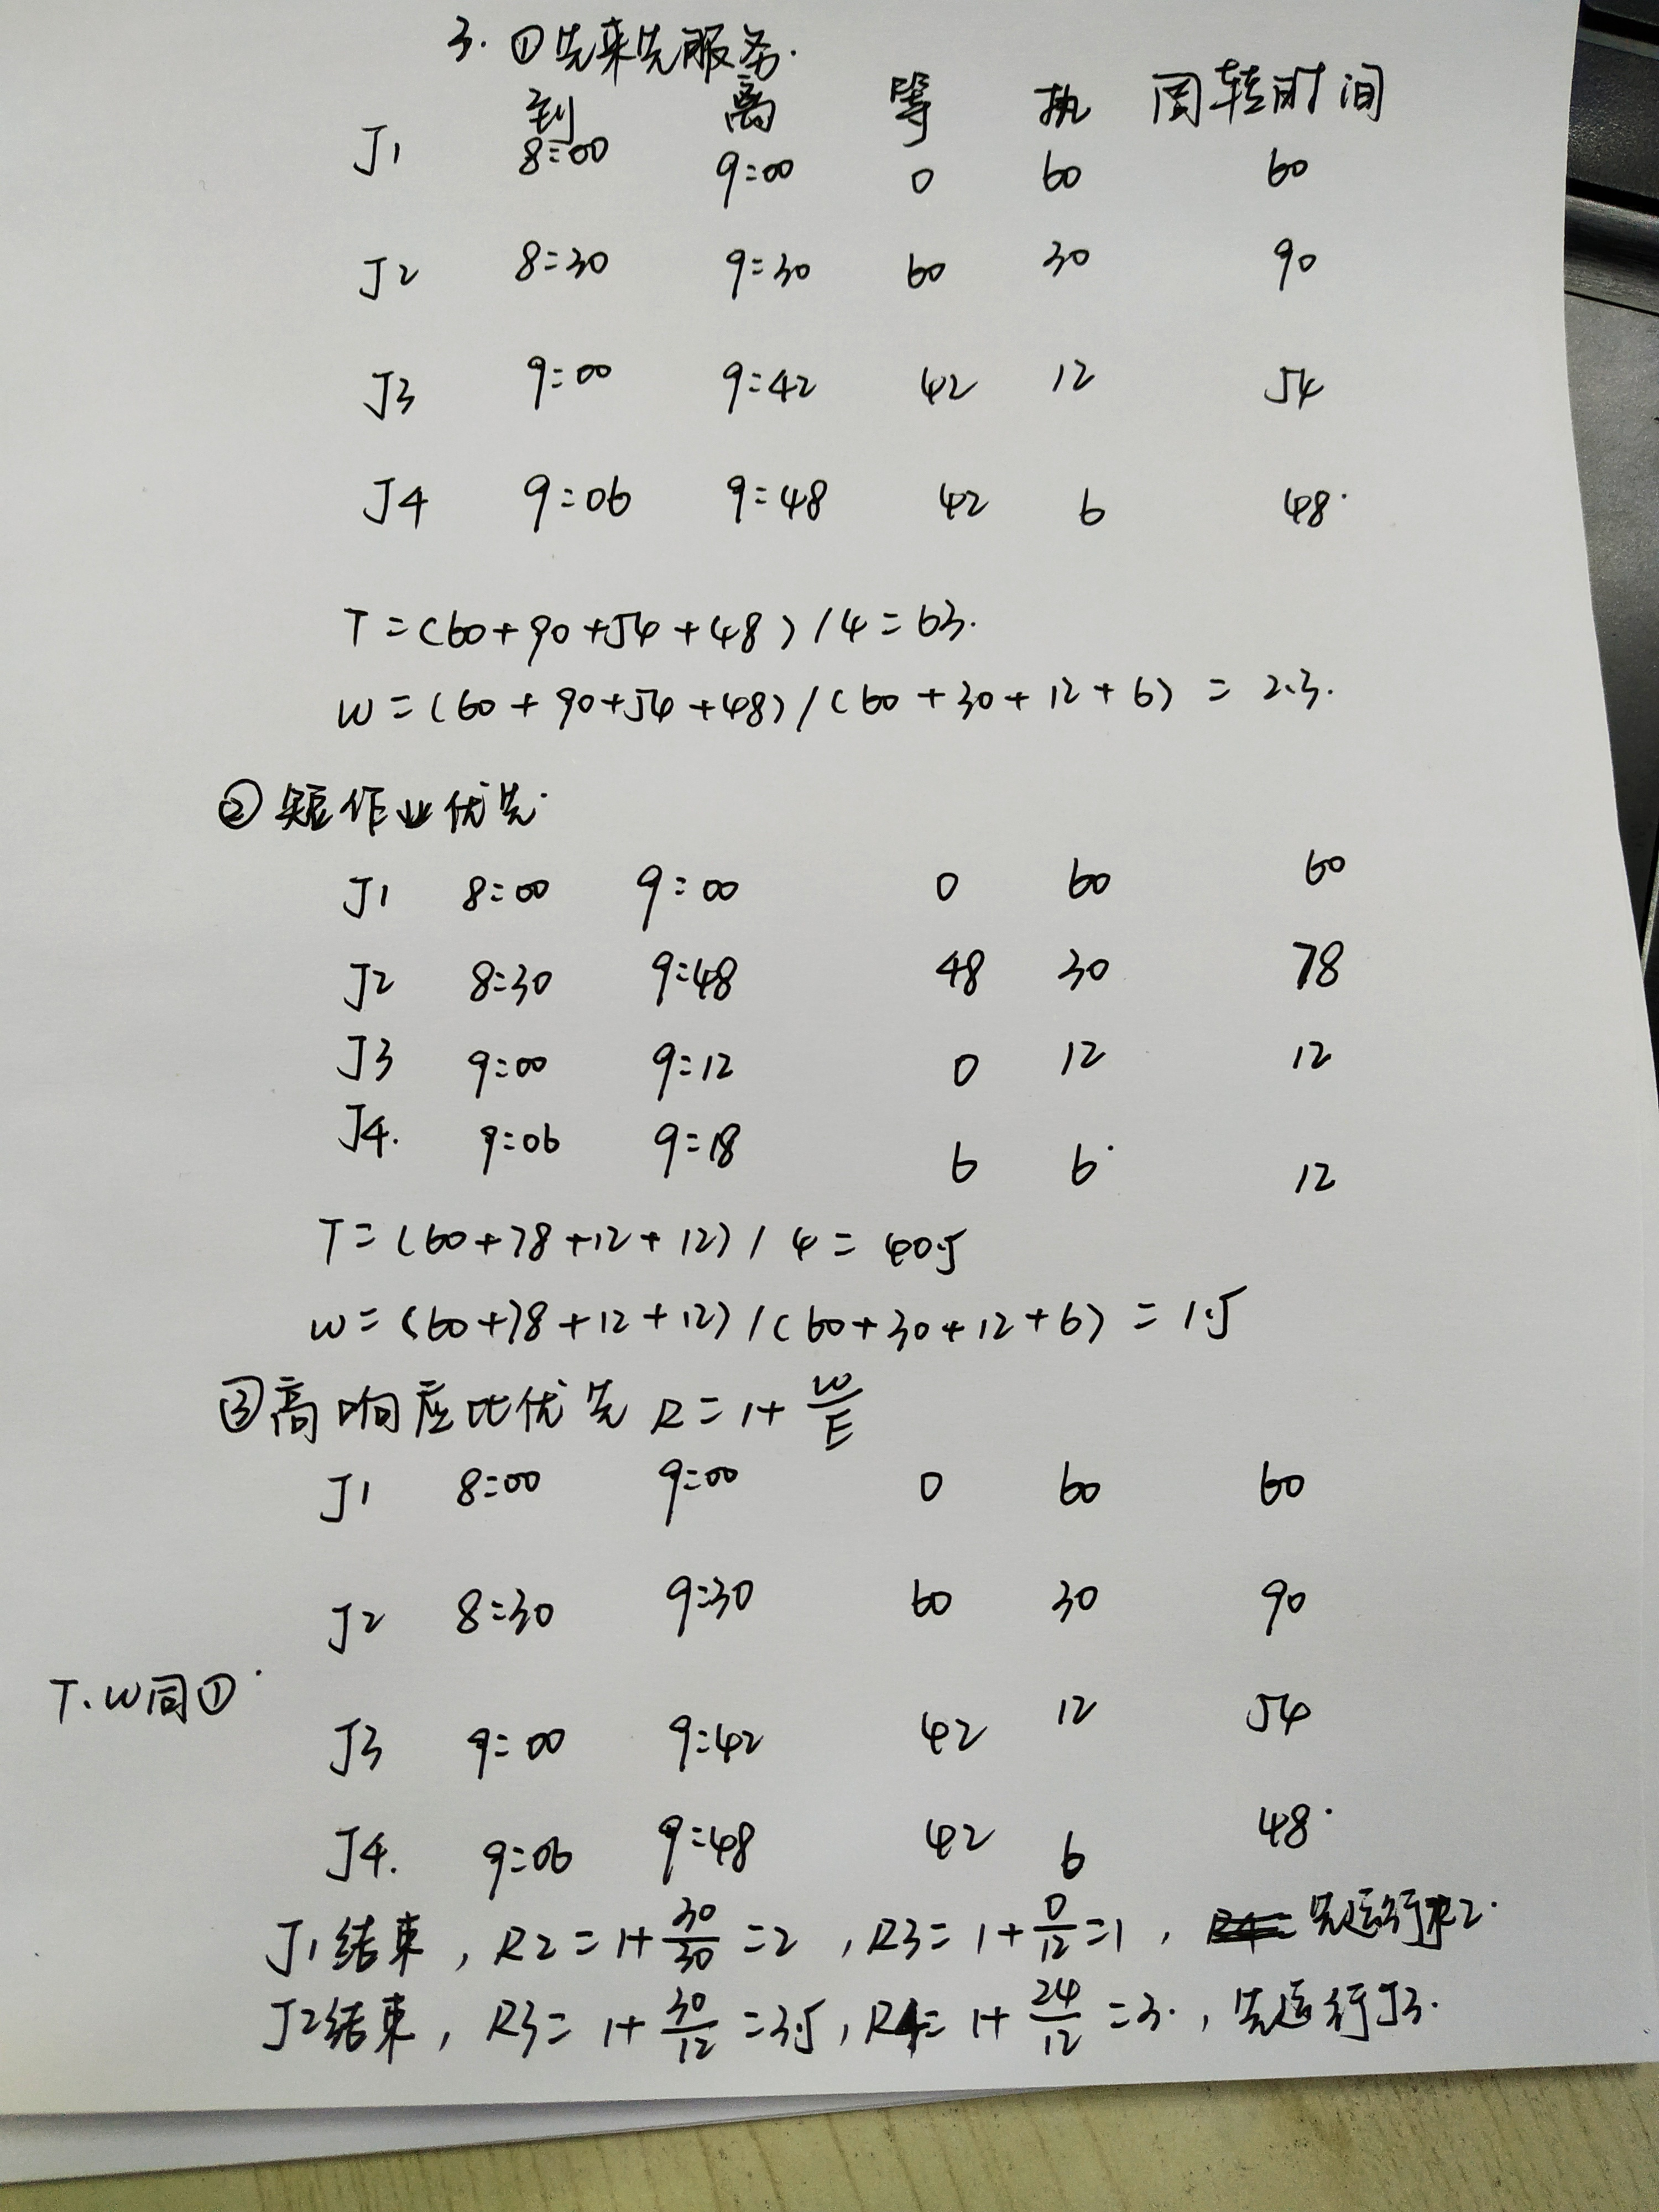 3. ①先来先服务.
到 离 等 执 周转时间
J1 8:00 9:00 0 60 60
J2 8:30 9:30 60 30 90
J3 9:00 9:42 42 12 54
J4 9:06 9:48 42 6 48.
T=(60+90+54+48)/4=63.
W=(60+90+54+48)/(60+30+12+6)=2.3.
②短作业优先.
J1 8:00 9:00 0 60 60
J2 8:30 9:48 48 30 78
J3 9:00 9:12 0 12 12
J4. 9:06 9:18 6 6. 12
T=(60+78+12+12)/4=40.5
W=(60+78+12+12)/(60+30+12+6)=1.5
③高响应比优先 R=1+W/E
J1 8:00 9:00 0 60 60
J2 8:30 9:30 60 30 90
T、W同①.
J3 9:00 9:42 42 12 54
J4. 9:06 9:48 42 6 48.
J1结束,R2=1+30/30=2,R3=1+0/12=1,先运行J2.
J2结束,R3=1+30/12=3.5,R4=1+24/12=3.,先运行J3.